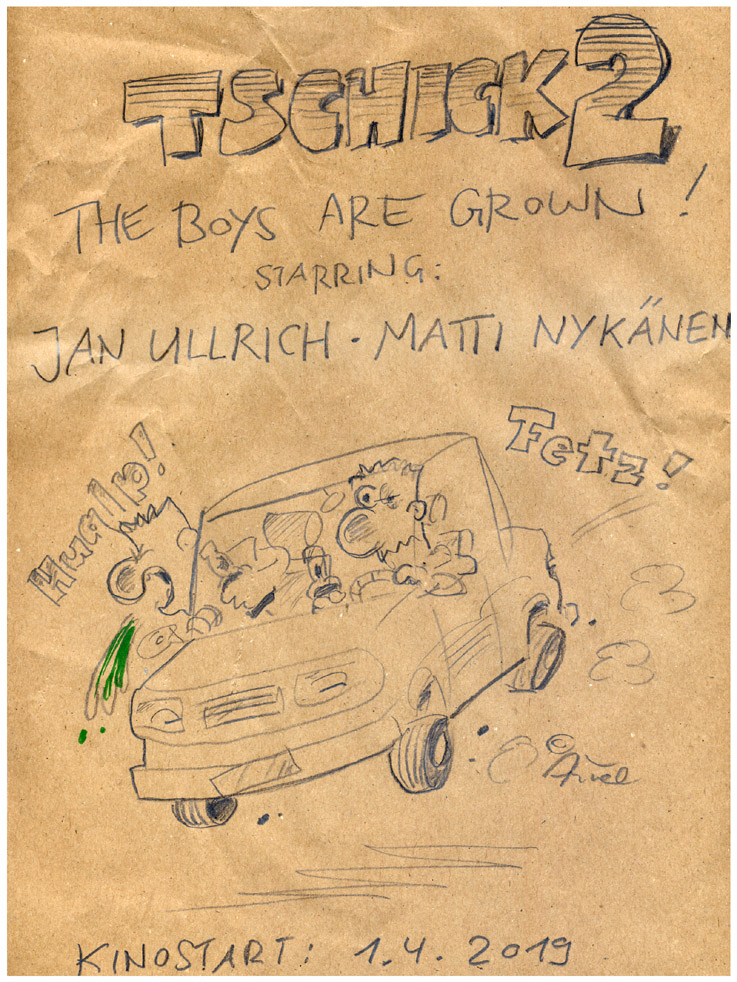 TSCHICK 2
THE BOYS ARE GROWN!
STARRING:
JAN ULLRICH · MATTI NYKÄNEN
Fetz!
©
KINOSTART: 1.4.2019